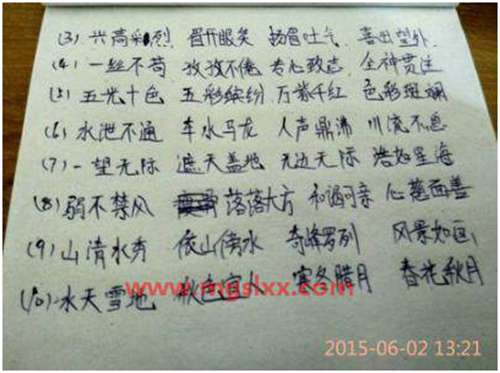 (3) 兴高采烈 眉开眼笑 扬眉吐气 喜出望外
(4) 一丝不苟 孜孜不倦 专心致志 全神贯注
(5) 五光十色 五彩缤纷 万紫千红 色彩斑斓
(6) 水泄不通 车水马龙 人声鼎沸 川流不息
(7) 一望无际 遮天盖地 无边无际 浩如星海
(8) 弱不禁风 落落大方 和蔼可亲 心慈面善
(9) 山清水秀 依山傍水 奇峰罗列 风景如画
(10) 冰天雪地 秋色宜人 寒冬腊月 春花秋月
www.mgslxx.com
2015-06-02 13:21